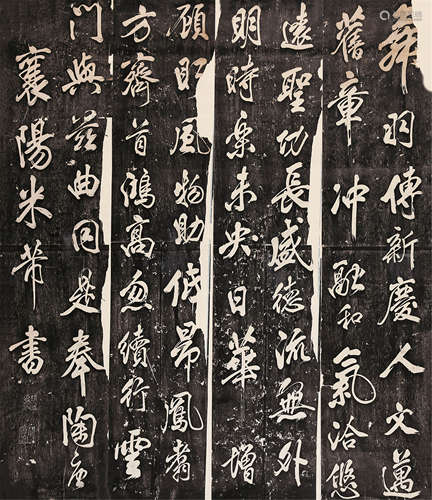 舞羽傳新慶人文邁
舊章沖融和氣洽悠
遠聖功長盛德流無外
明時樂未央日華增
顧眄風物助低昂鳳翥
方齊首鴻高忽續行雲
門與茲曲同是奉陶唐
襄陽米芾書